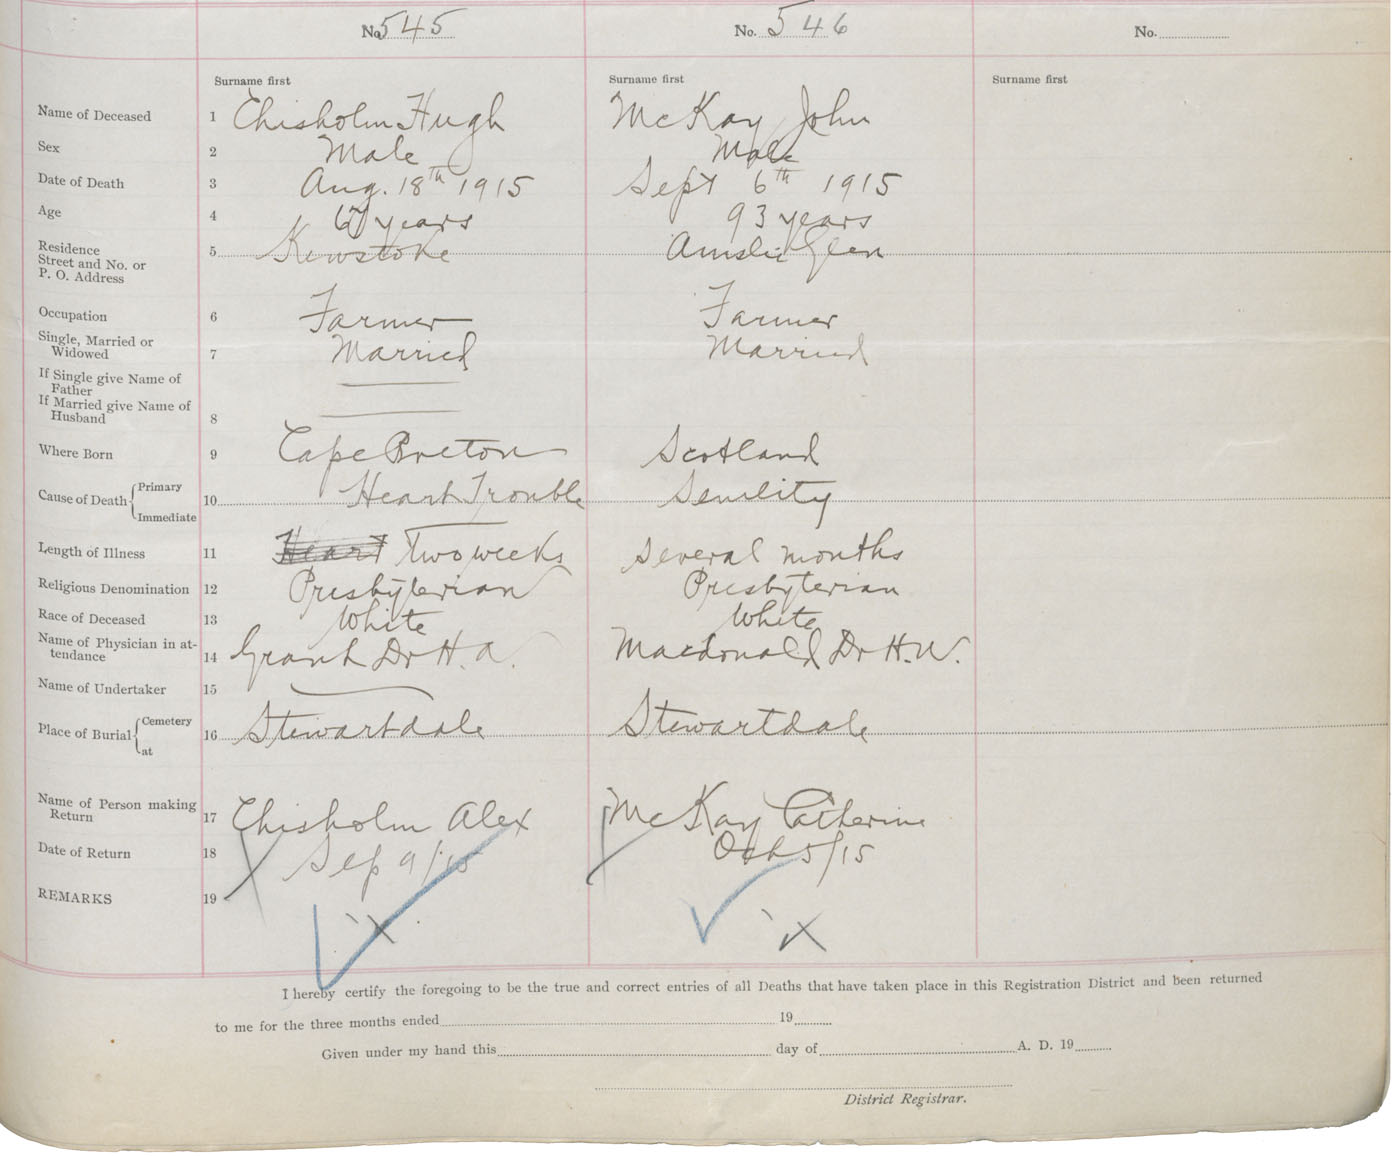 No. 545 No. 546 No.
Surname first Surname first Surname first
Name of Deceased 1 Chisholm Hugh McKay John
Sex 2 Male Male
Date of Death 3 Aug. 18th 1915 Sept 6th 1915
Age 4 years 93 years
Residence
Street and No. or
P. O. Address 5 Kewstoke Ainslie Glen
Occupation 6 Farmer Farmer
Single, Married or
Widowed 7 Married Married
If Single give Name of
Father
If Married give Name of
Husband 8
Where Born 9 Cape Breton Scotland
Cause of Death { Primary
Immediate 10 Heart Trouble Senility
Length of Illness 11 Heart Two weeks Several months
Religious Denomination 12 Presbyterian Presbyterian
Race of Deceased 13 White White
Name of Physician in at-
tendance 14 Grant Dr H. A. Macdonald Dr H. W.
Name of Undertaker 15
Place of Burial { Cemetery
at 16 Stewartdale Stewartdale
Name of Person making
Return 17 Chisholm Alex McKay Catherine
Date of Return 18 Sep 9/15 Oct 5/15
REMARKS 19 X X
I hereby certify the foregoing to be the true and correct entries of all Deaths that have taken place in this Registration District and been returned
to me for the three months ended 19
Given under my hand this day of A. D. 19
District Registrar.